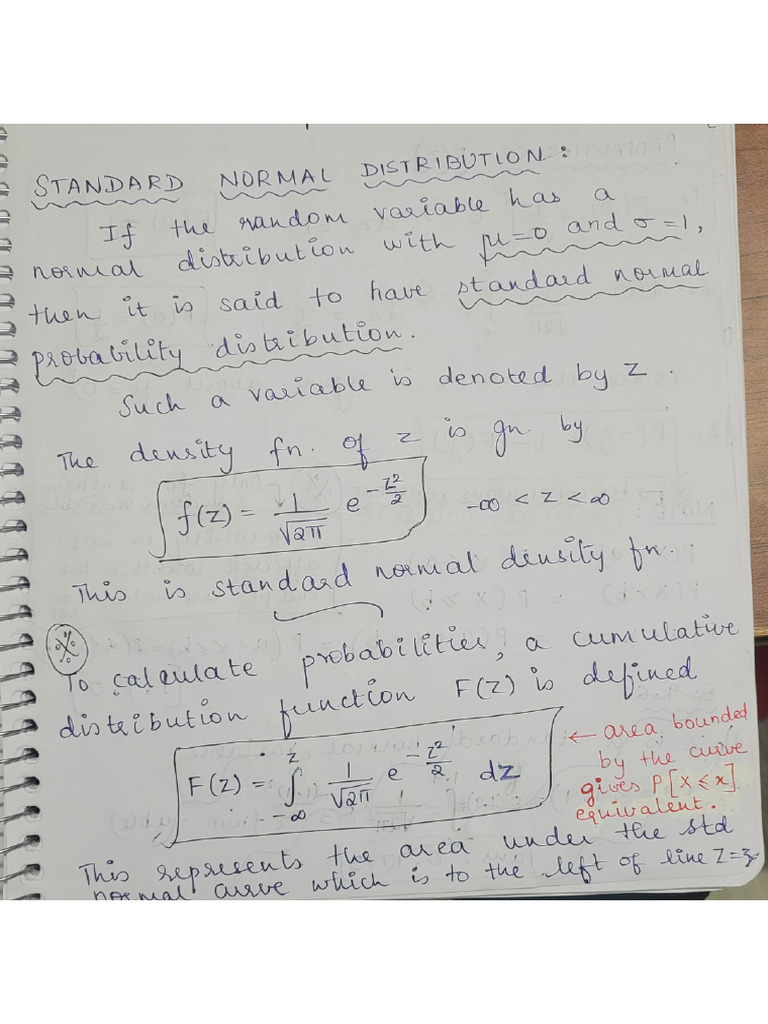 STANDARD NORMAL DISTRIBUTION:
If the random variable has a
normal distribution with μ=0 and σ=1,
then it is said to have standard normal
probability distribution.
Such a variable is denoted by Z.
The density fn. of z is gn by
f(z) = 1/√2π e^(-z²/2) -∞ < z < ∞
This is standard normal density fn.
To calculate probabilities, a cumulative
distribution function F(z) is defined
F(z) = ∫_{-∞}^{z} 1/√2π e^(-z²/2) dz
← area bounded
by the curve
gives P[X≤x]
equivalent.
This represents the area under the std
normal curve which is to the left of line Z=z